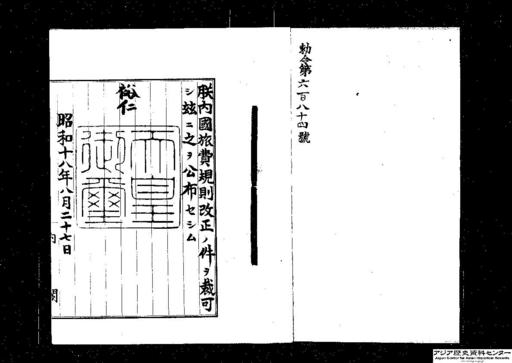 勅令第六百八十四號
朕內國旅費規則改正ノ件ヲ裁可
シ玆ニ之ヲ公布セシム
裕仁
天皇御璽
昭和十八年八月二十七日
内閣
アジア歴史資料センター
Japan Center for Asian Historical Records